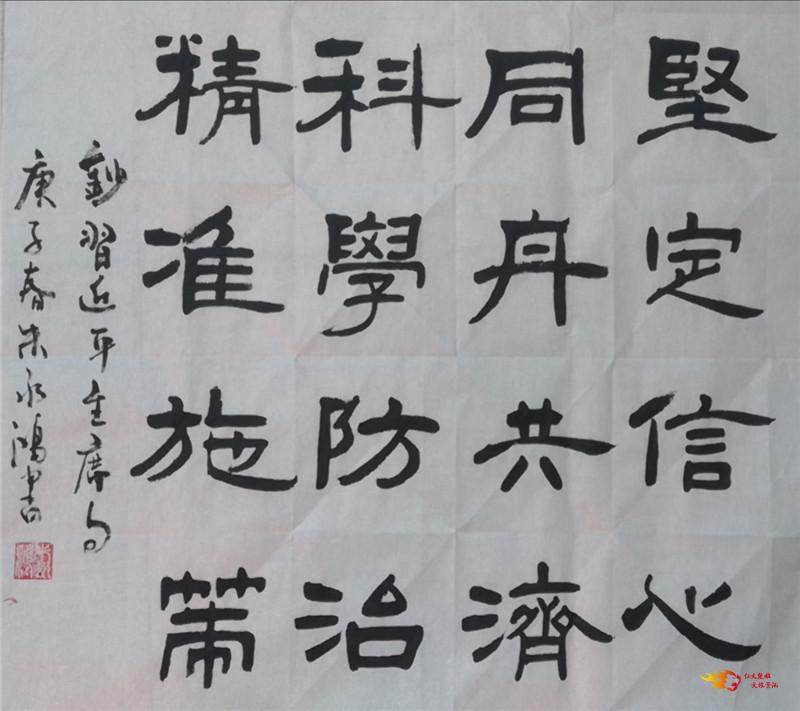 堅定信心
同舟共濟
科學防治
精准施策
鈔習近平主席句
庚子春朱永鴻書
红火楚雄